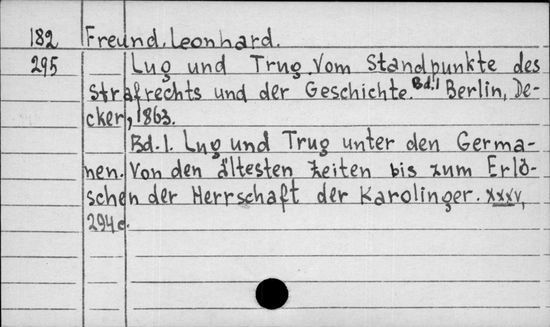 182 Freund, Leonhard.
295 Lug und Trug. Vom Standpunkte des
Strafrechts und der Geschichte. Bd.1 Berlin, De-
cker, 1863.
Bd. 1. Lug und Trug unter den Germa-
nen. Von den ältesten Zeiten bis zum Erlö-
schen der Herrschaft der Karolinger. XXXV,
294 c.